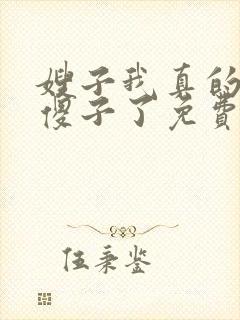 嫂子我真的
傻子了免费
伍秉鉴